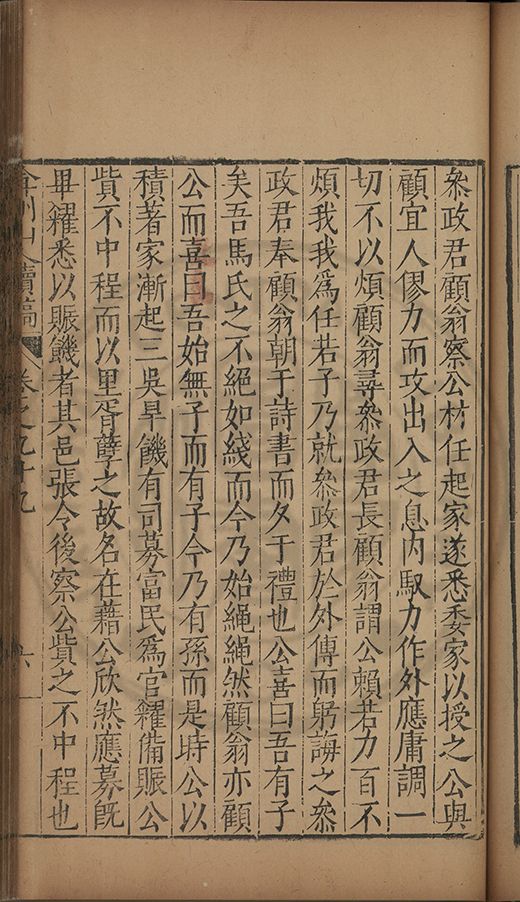 叅政君顧翁察公材任起家遂悉委家以授之公與
顧宜人僇力而攻出入之息内馭力作外應庸調一
切不以煩顧翁尋叅政君長顧翁謂公賴若力百不
煩我我爲任若子乃就叅政君於外傳而躬誨之叅
政君奉顧翁朝于詩書而夕于禮也公喜曰吾有子
矣吾馬氏之不絕如綫而今乃始繩繩然顧翁亦顧
公而喜曰吾始無子而有子今乃有孫而是時公以
積著家漸起三吳旱饑有司募富民爲官糴備賑公
貲不中程而以里胥孽之故名在藉公欣然應募旣
畢糴悉以賑饑者其邑張令後察公貲之不中程也
弇州山人續稿 卷之九十九 六